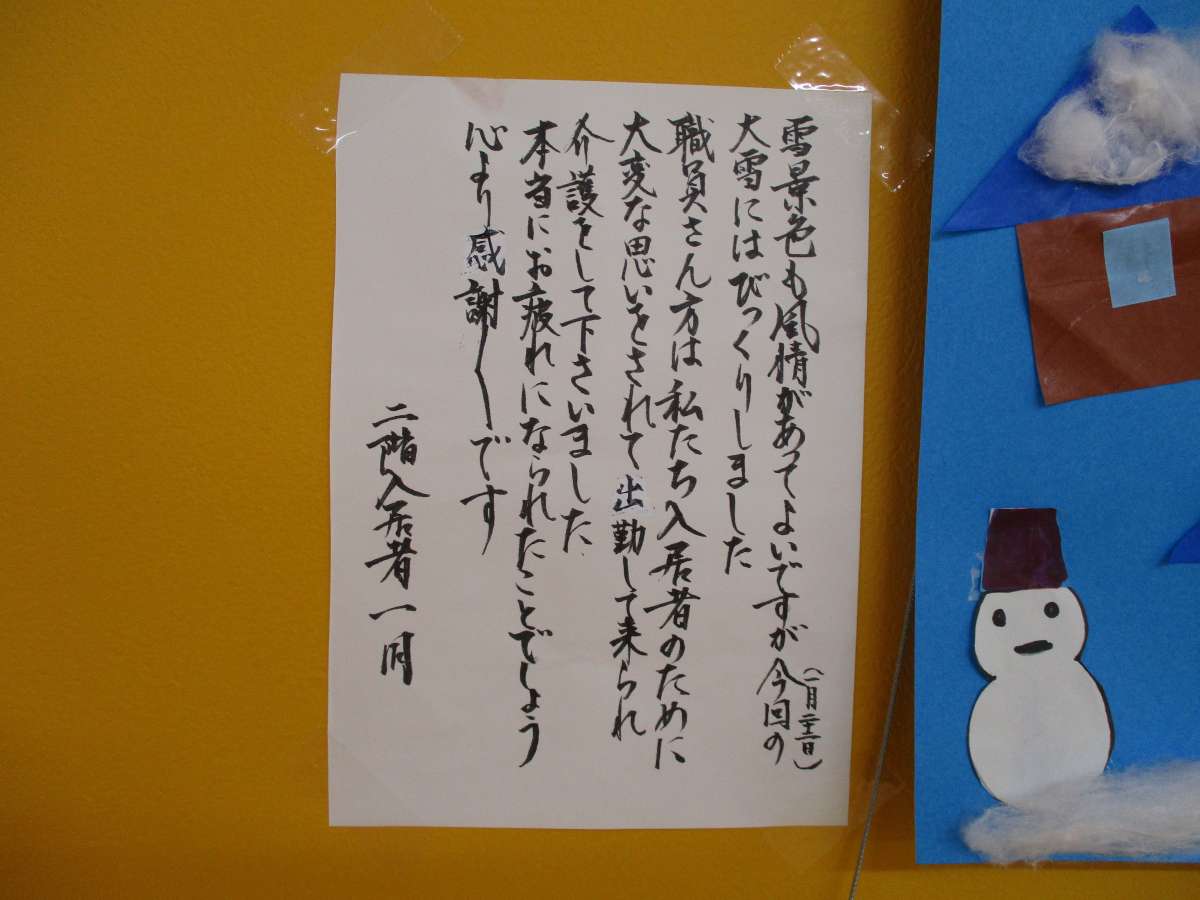 雪景色も風情があってよいですが今回の
(一月二十二日)
大雪にはびっくりしました
職員さん方は私たち入居者のために
大変な思いをされて出勤して来られ
介護をして下さいました
本当にお疲れになられたことでしょう
心より感謝〱です
二階入居者一同